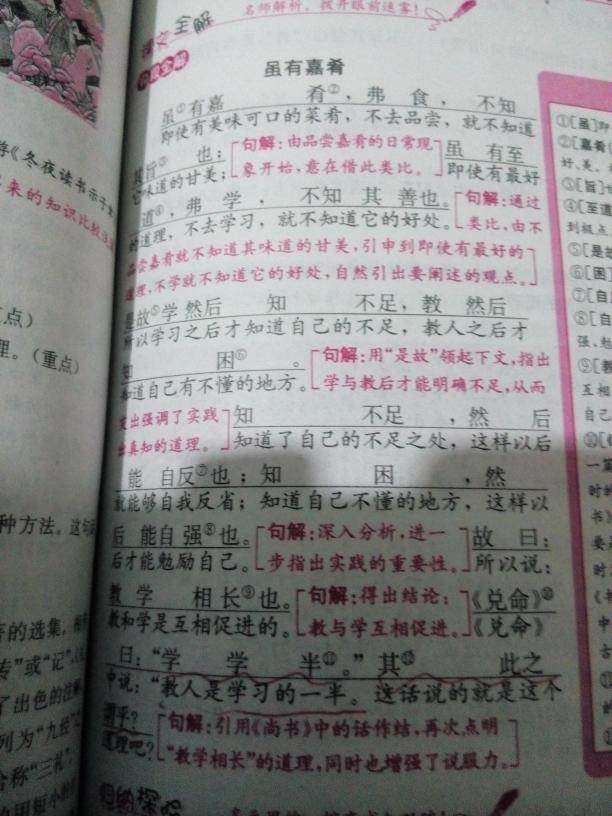 名师解析，拨开眼前迷雾！
课文全解
虽有嘉肴
虽①有嘉 肴②，弗 食，不知
即使有美味可口的菜肴，不去品尝，就不知道
其旨③ 也；[句解：由品尝嘉肴的日常现 虽 有至
它味道的甘美；象开始，意在借此类比。] 即使有最好
道④，弗 学，不知 其 善也。[句解：通过
的道理，不去学习，就不知道它的好处。类比，由不
品尝嘉肴就不知道其味道的甘美，引申到即使有最好的
道理，不学就不知道它的好处，自然引出要阐述的观点。]
是故⑤学 然后 知 不足，教 然后
所以学习之后才知道自己的不足，教人之后才
知 困⑥ 。[句解：用“是故”领起下文，指出
知道自己有不懂的地方。学与教后才能明确不足，从而
突出强调了实践 知 不足 ，然 后
出真知的道理。] 知道了自己的不足之处，这样以后
能 自反⑦也；知 困 ，然
就能够自我反省；知道自己不懂的地方，这样以
后 能自强⑧也。[句解：深入分析，进一 故 曰：
后才能勉励自己。步指出实践的重要性。] 所以说：
教 学 相长⑨也。[句解：得出结论： 《兑命》⑩
教和学是互相促进的。教与学互相促进。] 《兑命》
曰：“学 学 半⑪。”其⑫ 此之
中说：“教人是学习的一半。这话说的就是这个
谓乎？[句解：引用《尚书》中的话作结，再次点明
道理吧？“教学相长”的道理，同时也增强了说服力。]
归纳探究
游《冬夜读书示子
来的知识比较浅
点）
理。（重点）
种方法。这句
的选集，
传”或“记”
了出色的注
列为“九经”
合称“三礼”，
①[虽]
②[嘉肴]
好、美。
③[旨]
④[至道
到极点
⑤[是故
⑥[困]
⑦[自
⑧[自
强，勉
⑨[教
互相
己来